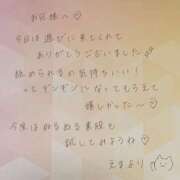 お兄様へ♡
今日は遊びに来てくれて
ありがとうございました
舐められるの気持ちいい！
ってギンギンになってもらえて
嬉しかった〜♡
今度はぬるぬる素股も
試してみようね♡
えまより